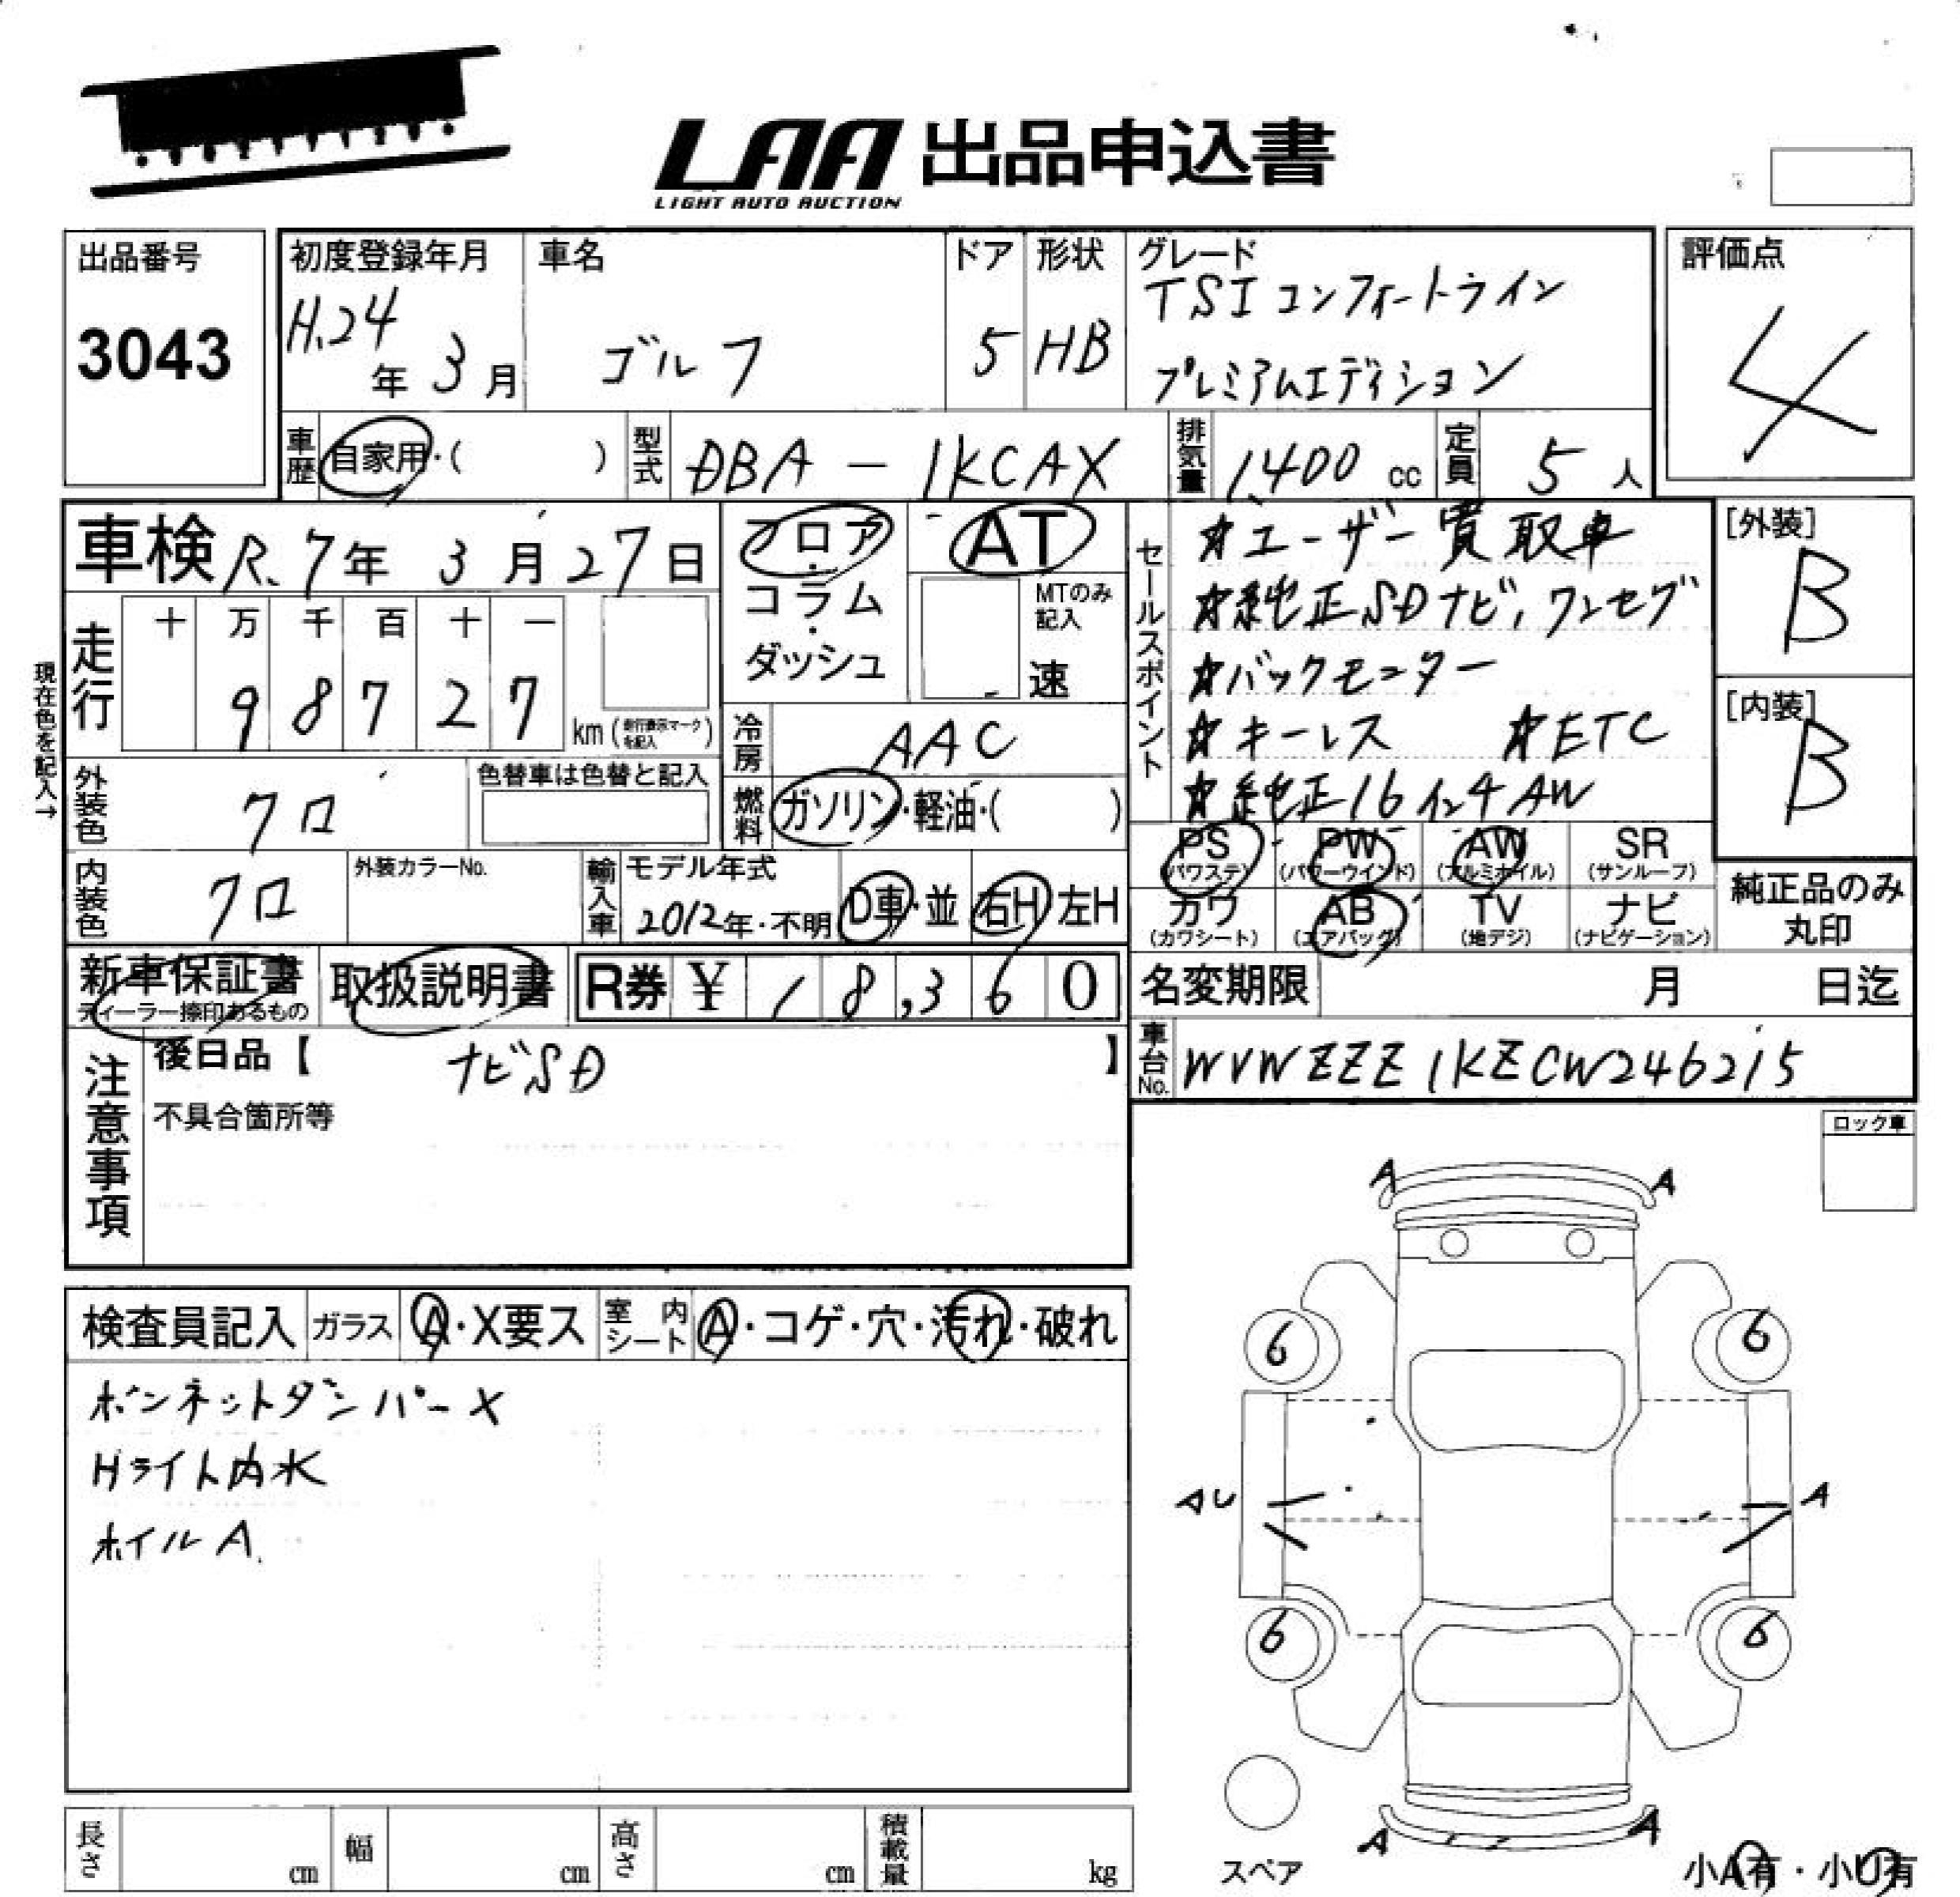 LAA 出品申込書
LIGHT AUTO AUCTION
出品番号
3043
初度登録年月
H.24年 3月
車名
ゴルフ
ドア
5
形状
HB
グレード
TSI コンフォートライン
プレミアムエディション
評価点
4
車歴 自家用・( )
型式 DBA-1KCAX
排気量 1,400 cc
定員 5人
車検 R.7年 3月27日
フロア・コラム・ダッシュ
AT
MTのみ記入
速
セールスポイント
☆ユーザー買取車
☆純正SDナビ,ワンセグ
☆バックモニター
☆キーレス ☆ETC
☆純正16インチAW
[外装]
B
[内装]
B
現在色を記入→
走行
十 万 千 百 十 一
9 8 7 2 7
km (走行表示マークを記入)
冷房 AAC
外装色 クロ
色替車は色替と記入
燃料 ガソリン・軽油・( )
内装色 クロ
外装カラーNo.
輸入車
モデル年式
2012年・不明
D車・並
右H 左H
PS (パワステ)
PW (パワーウインド)
AW (アルミホイル)
SR (サンルーフ)
カワ (カワシート)
AB (エアバッグ)
TV (地デジ)
ナビ (ナビゲーション)
純正品のみ
丸印
新車保証書
ディーラー捺印あるもの
取扱説明書
R券 ¥ 18,360
名変期限 月 日迄
車台No. WVWZZZ1KZCW246215
注意事項
後日品【 ナビSD 】
不具合箇所等
ロック車
検査員記入
ガラス A・X要ス
室内シート A・コゲ・穴・汚れ・破れ
ボンネットダンパーX
Hライト内水
ホイルA.
A A
6 6
AU A
6 6
A A
スペア
小A有・小U有
長さ cm
幅 cm
高さ cm
積載量 kg